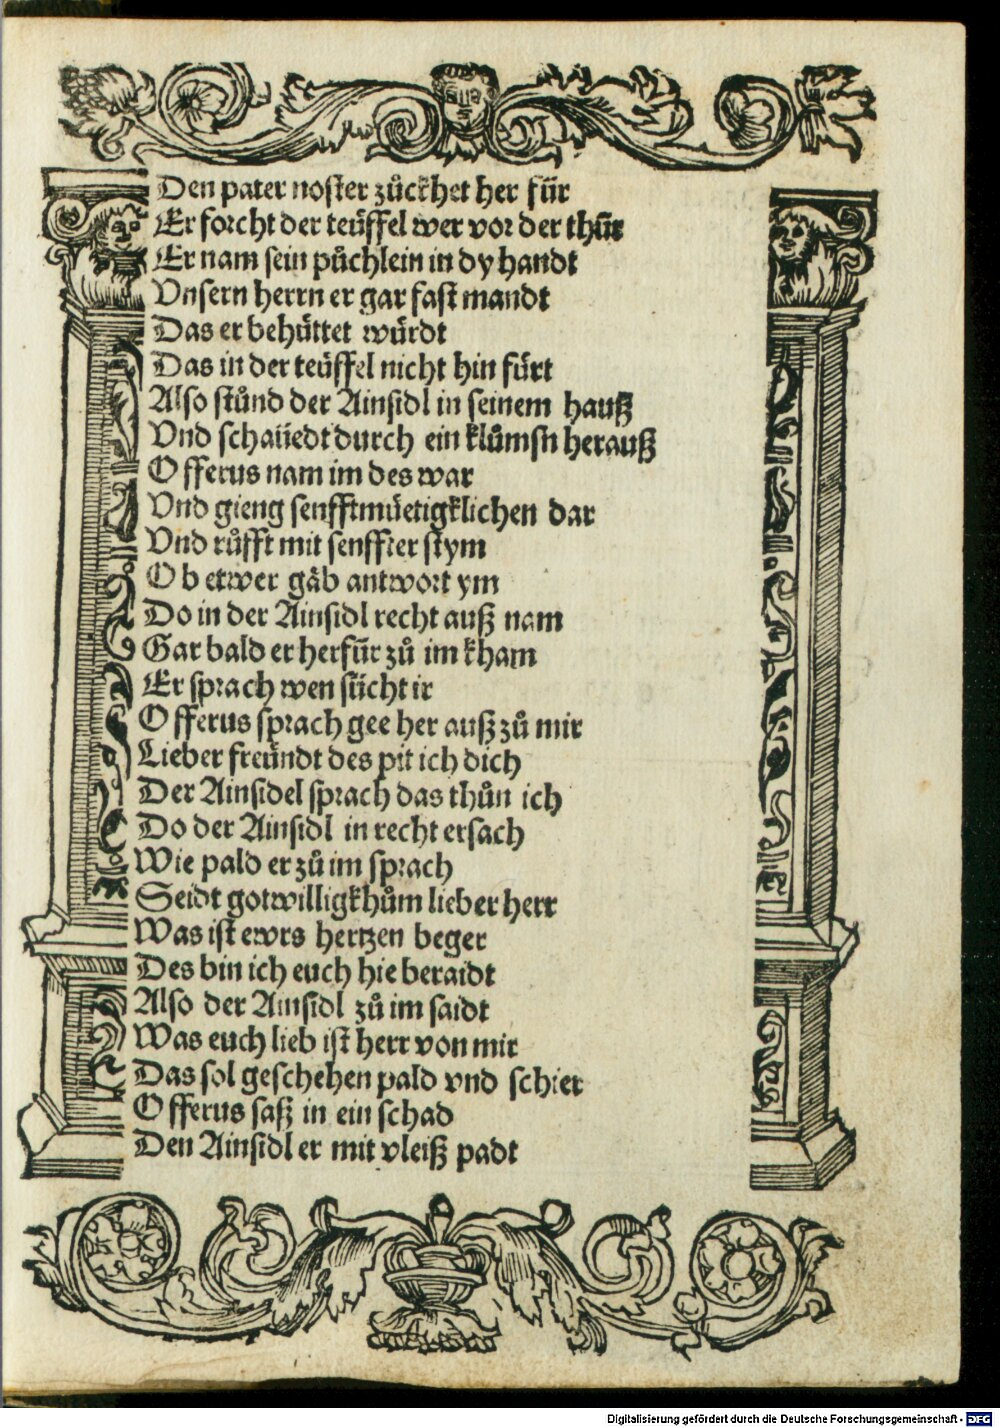 Den pater noster zůckhet her für
Er forcht der teüffel wer vor der thür
Er nam sein půchlein in dy handt
Vnsern herrn er gar fast mandt
Das er behüttet würdt
Das in der teüffel nicht hin fürt
Also stůnd der Ainsidl in seinem hauß
Vnd schaüedt durch ein klůmsn herauß
Offerus nam im des war
Vnd gieng senfftmüetigklichen dar
Vnd růfft mit senffter stym
Ob etwer gäb antwort ym
Do in der Ainsidl recht auß nam
Gar bald er herfür zů im kham
Er sprach wen sücht ir
Offerus sprach gee her auß zů mir
Lieber freündt des pit ich dich
Der Ainsidel sprach das thůn ich
Do der Ainsidl in recht ersach
Wie pald er zů im sprach
Seidt gotwilligkhům lieber herr
Was ist ewrs hertzen beger
Des bin ich euch hie beraidt
Also der Ainsidl zů im saidt
Was euch lieb ist herr von mir
Das sol geschehen pald vnd schier
Offerus saß in ein schad
Den Ainsidl er mit vleiß padt
Digitalisierung gefördert durch die Deutsche Forschungsgemeinschaft - DFG